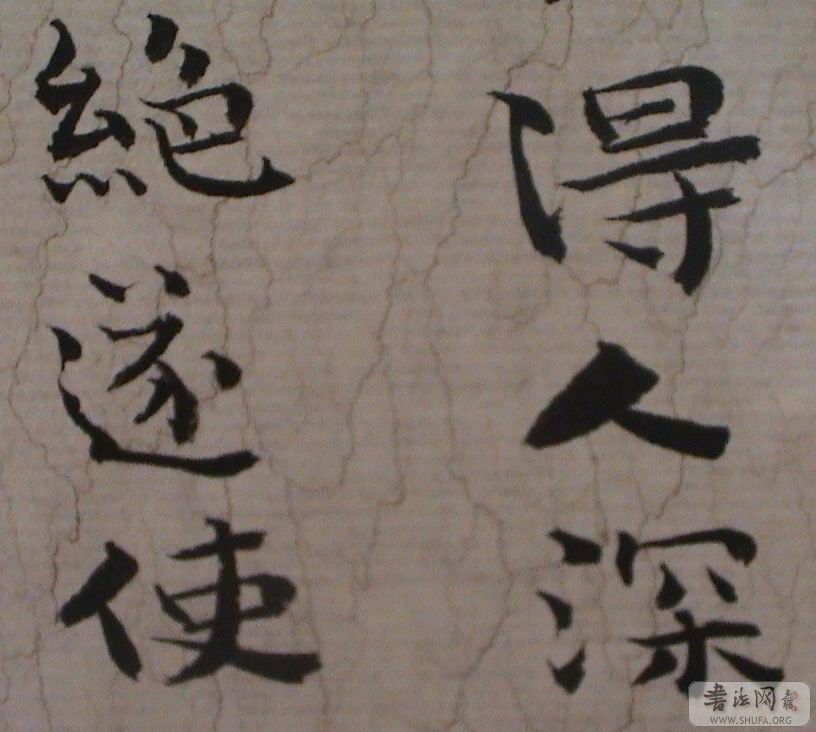 得人深
絶遂使
書法网
WWW.SHUFA.ORG